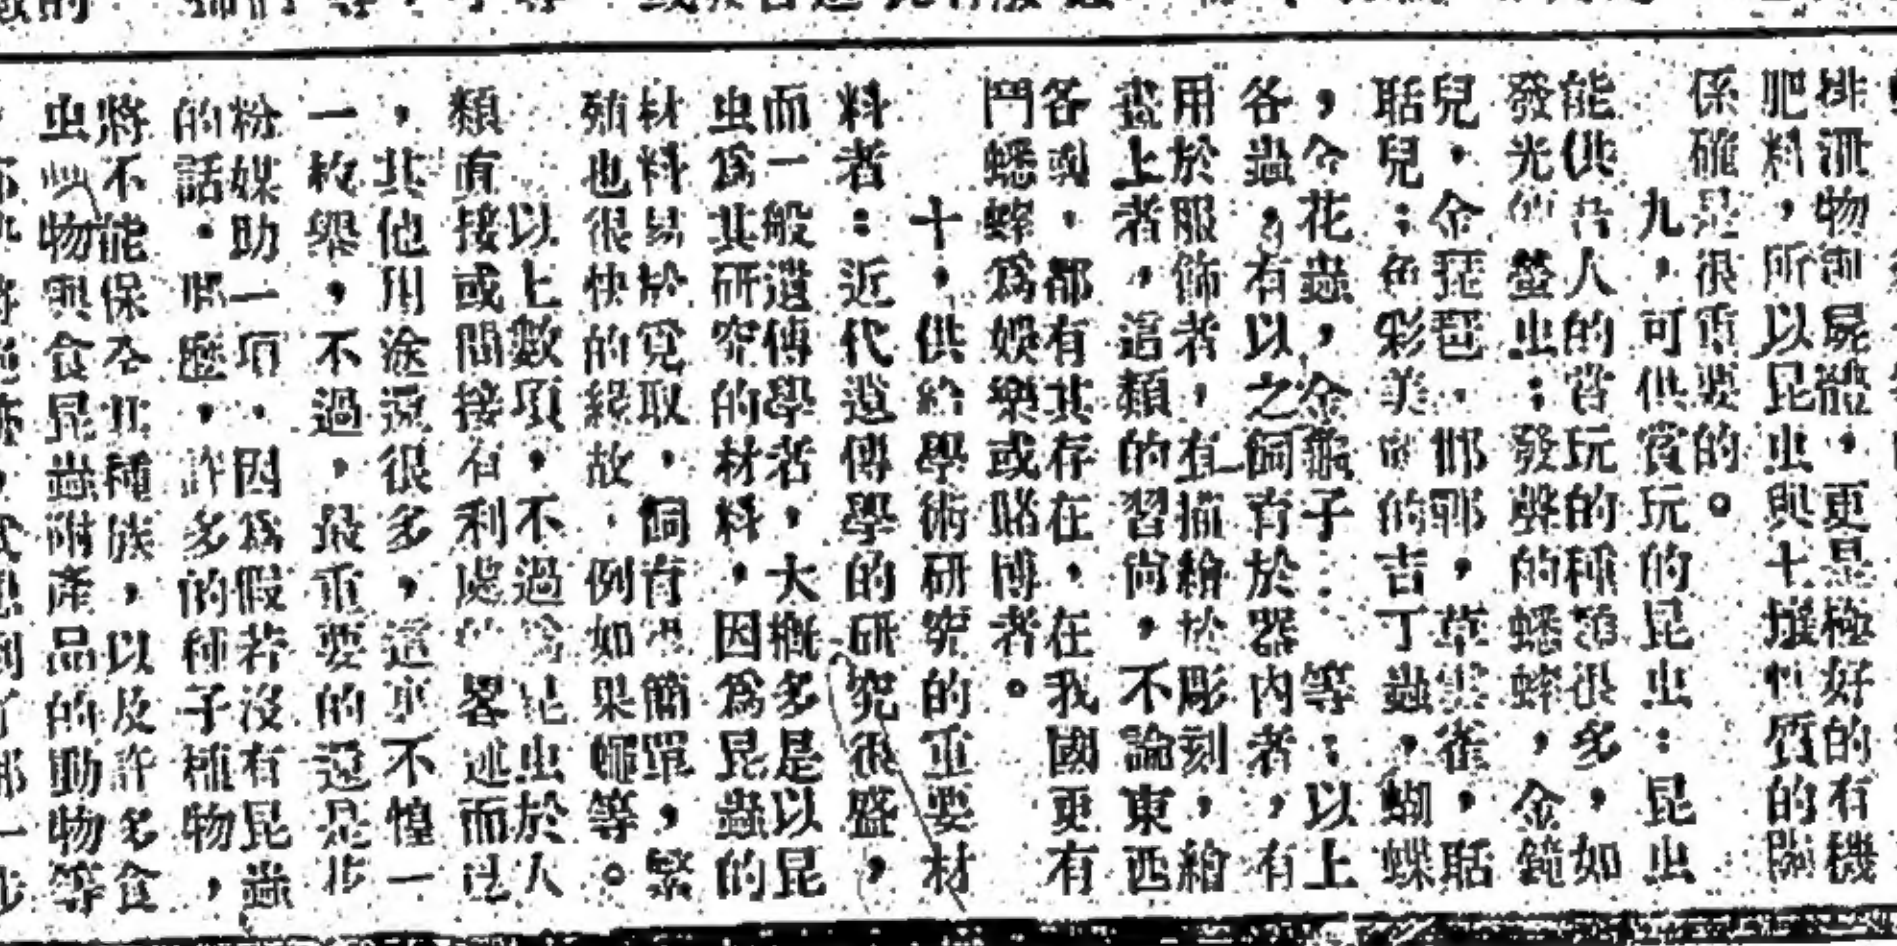 排泄物和屍體，更是極好的有機
肥料，所以昆虫與土壤性質的關
係確是很重要的。
九，可供賞玩的昆虫：昆虫
能供吾人的賞玩的種類很多，如
發光的螢虫；發聲的蟋蟀，金鐘
兒，金琵琶，耶耶，草雲雀，聒
聒兒；色彩美麗的吉丁蟲，蝴蝶
，今花蟲，金龜子等；以上
各蟲，有以之飼育於器內者，有
用於服飾者，直描繪於彫刻，繪
畫上者，這類的習尚，不論東西
各國，都有其存在，在我國更有
鬥蟋蟀，爲娛樂或賭博者。
十，供給學術研究的重要材
料者：近代遺傳學的研究很盛，
而一般遺傳學者，大概多是以昆
虫爲其研究的材料，因爲昆蟲的
材料易於覓取，飼育 簡單，繁
殖也很快的緣故，例如果蠅等。
以上數項，不過 昆虫於人
類有接或間接有利處 畧述而已
，其他用途還很多，這 不惶一
一枚舉，不過，最重要的還是
粉媒助一項，因爲假若沒有昆蟲
的話，   ，許多的種子植物，
將不能保 其種族，以及許多食
虫 物與食昆蟲附產品的動物等